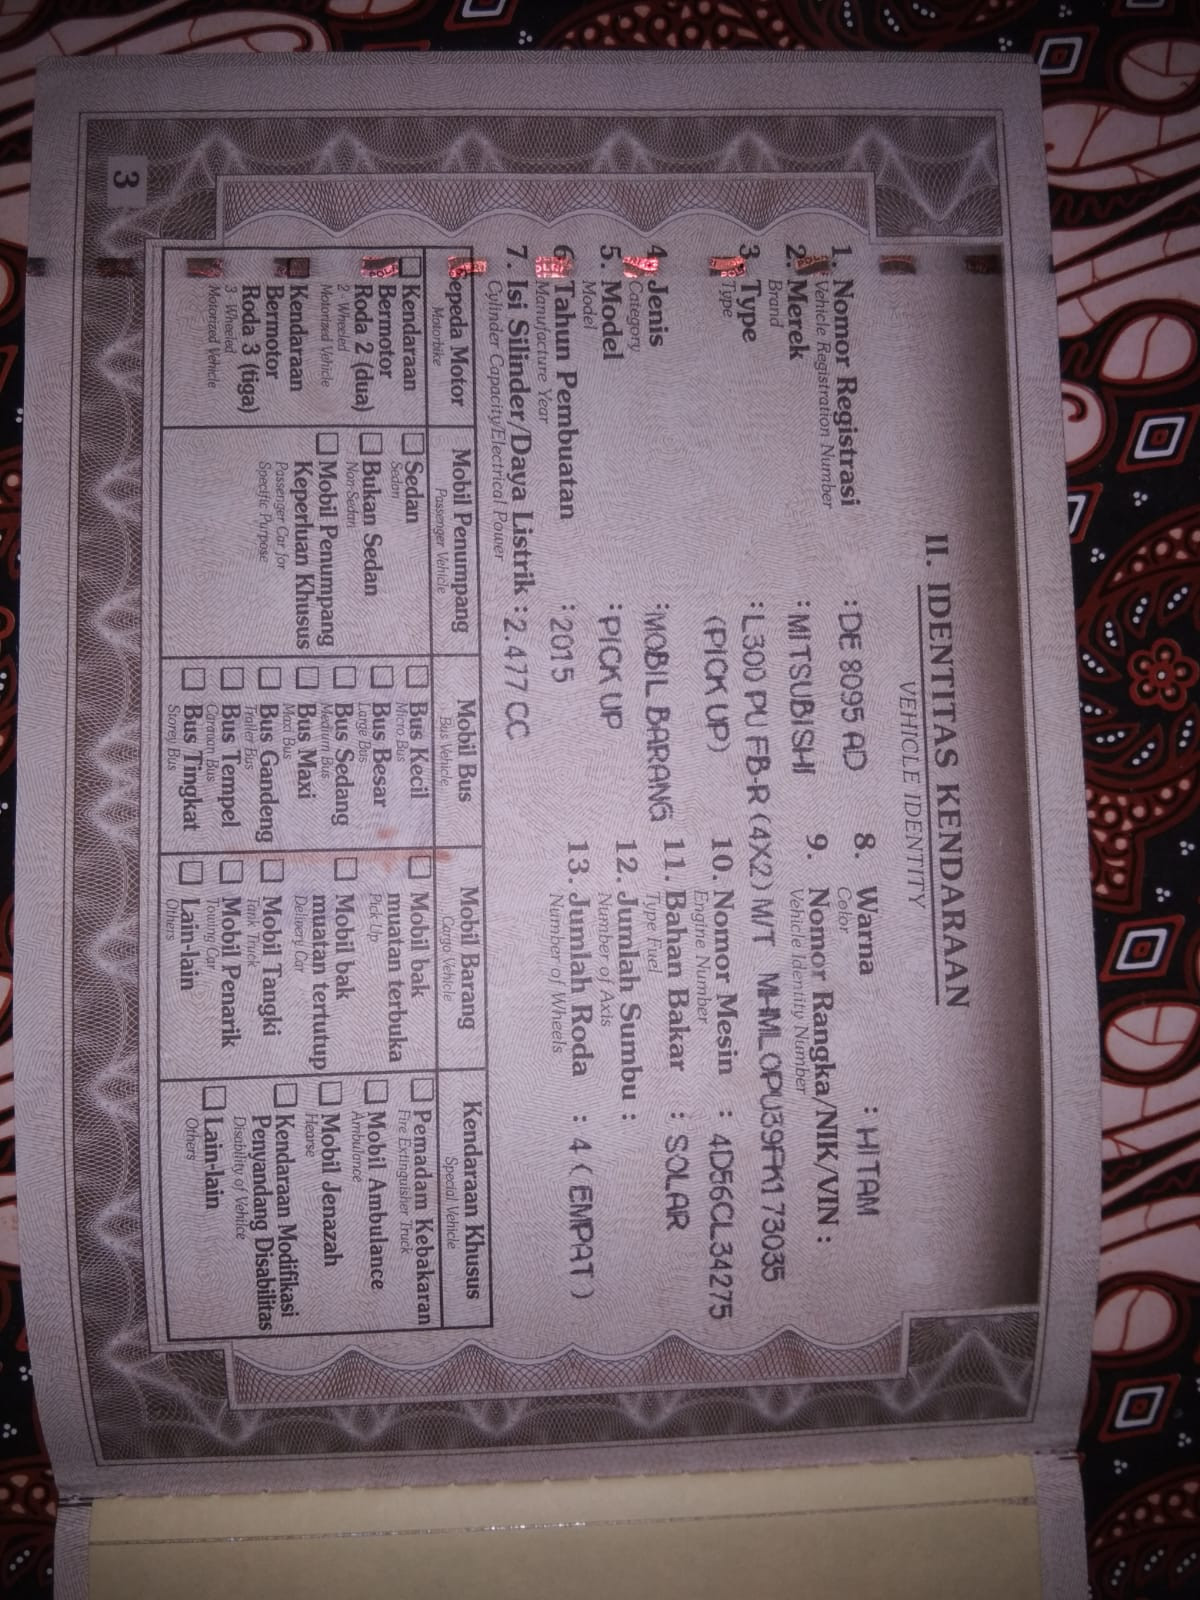 II. IDENTITAS KENDARAAN
VEHICLE IDENTITY
1. Nomor Registrasi : DE 8095 AD
Vehicle Registration Number
2. Merek : MITSUBISHI
Brand
3. Type : L300 PU FB-R (4X2) M/T
Type (PICK UP)
4. Jenis : MOBIL BARANG
Category
5. Model : PICK UP
Model
6. Tahun Pembuatan : 2015
Manufacture Year
7. Isi Silinder/Daya Listrik : 2.477 CC
Cylinder Capacity/Electrical Power
8. Warna : HITAM
Color
9. Nomor Rangka/NIK/VIN :
Vehicle Identity Number
MHML0PU39FK173035
10. Nomor Mesin : 4D56CL34275
Engine Number
11. Bahan Bakar : SOLAR
Type Fuel
12. Jumlah Sumbu :
Number of Axis
13. Jumlah Roda : 4 ( EMPAT )
Number of Wheels
Sepeda Motor
Motorbike
Kendaraan
Bermotor
Roda 2 (dua)
2 Wheeled
Motorized Vehicle
Kendaraan
Bermotor
Roda 3 (tiga)
3 Wheeled
Motorized Vehicle
Mobil Penumpang
Passenger Vehicle
Sedan
Sedan
Bukan Sedan
Non-Sedan
Mobil Penumpang
Keperluan Khusus
Passenger Car for
Specific Purpose
Mobil Bus
Bus Vehicle
Bus Kecil
Micro Bus
Bus Besar
Large Bus
Bus Sedang
Medium Bus
Bus Maxi
Maxi Bus
Bus Gandeng
Trailer Bus
Bus Tempel
Caravan Bus
Bus Tingkat
Storey Bus
Mobil Barang
Cargo Vehicle
Mobil bak
muatan terbuka
Pick Up
Mobil bak
muatan tertutup
Delivery Car
Mobil Tangki
Tank Truck
Mobil Penarik
Towing Car
Lain-lain
Others
Kendaraan Khusus
Special Vehicle
Pemadam Kebakaran
Fire Extinguisher Truck
Mobil Ambulance
Ambulance
Mobil Jenazah
Hearse
Kendaraan Modifikasi
Penyandang Disabilitas
Disability of Vehilce
Lain-lain
Others
3